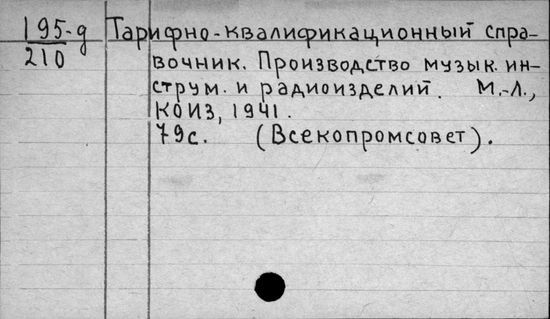 195-д Тарифно-квалификационный спра-
210 вочник. Производство музык. ин-
струм. и радиоизделий. М.-Л.,
КОИЗ, 1941.
79с. (Всекопромсовет).